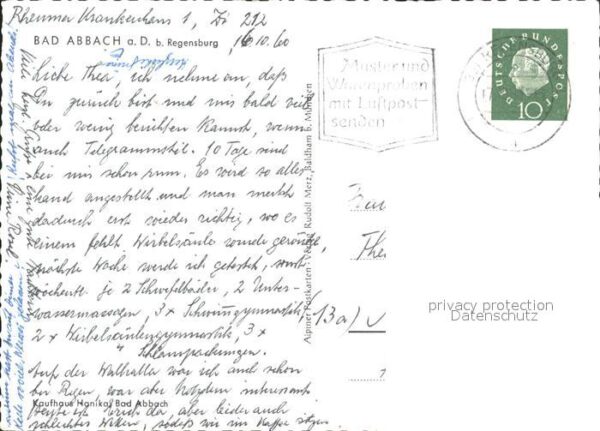 Rheuma Krankenhaus 1, Zi 212
BAD ABBACH a. D. b. Regensburg
16.10.60
Liebe Thea, ich nehme an, daß
Du zurück bist und uns bald viel
oder wenig berichten kannst, wenn
auch Telegrammstil. 10 Tage sind
bei mir schon rum. Es wird so aller-
hand angestellt und man merkt
dadurch erst wieder richtig, wo es
einem fehlt. Wirbelsäule wurde geröntgt,
nächste Woche werde ich getestet, sonst
wöchentl. je 2 Schwefelbäder, 2 Unter-
wassermassagen, 3x Schwimmgymnastik,
2 x Wirbelsäulengymnastik, 3 x
Schlammpackungen.
Auf der Walhalla war ich auch schon
bei Regen, war aber trotzdem interessant.
Heute ist
da, aber leider auch
schlechtes Wetter, sodaß wir im Kaffee sitzen.
Kaufhaus Hanika, Bad Abbach
Alpiner Postkarten-Verlag Rudolf Merz, Baldham b. München
Muster und
Warenproben
mit Luftpost
senden
DEUTSCHE BUNDESPOST
10
Frau
The
13a)
privacy protection
Datenschutz